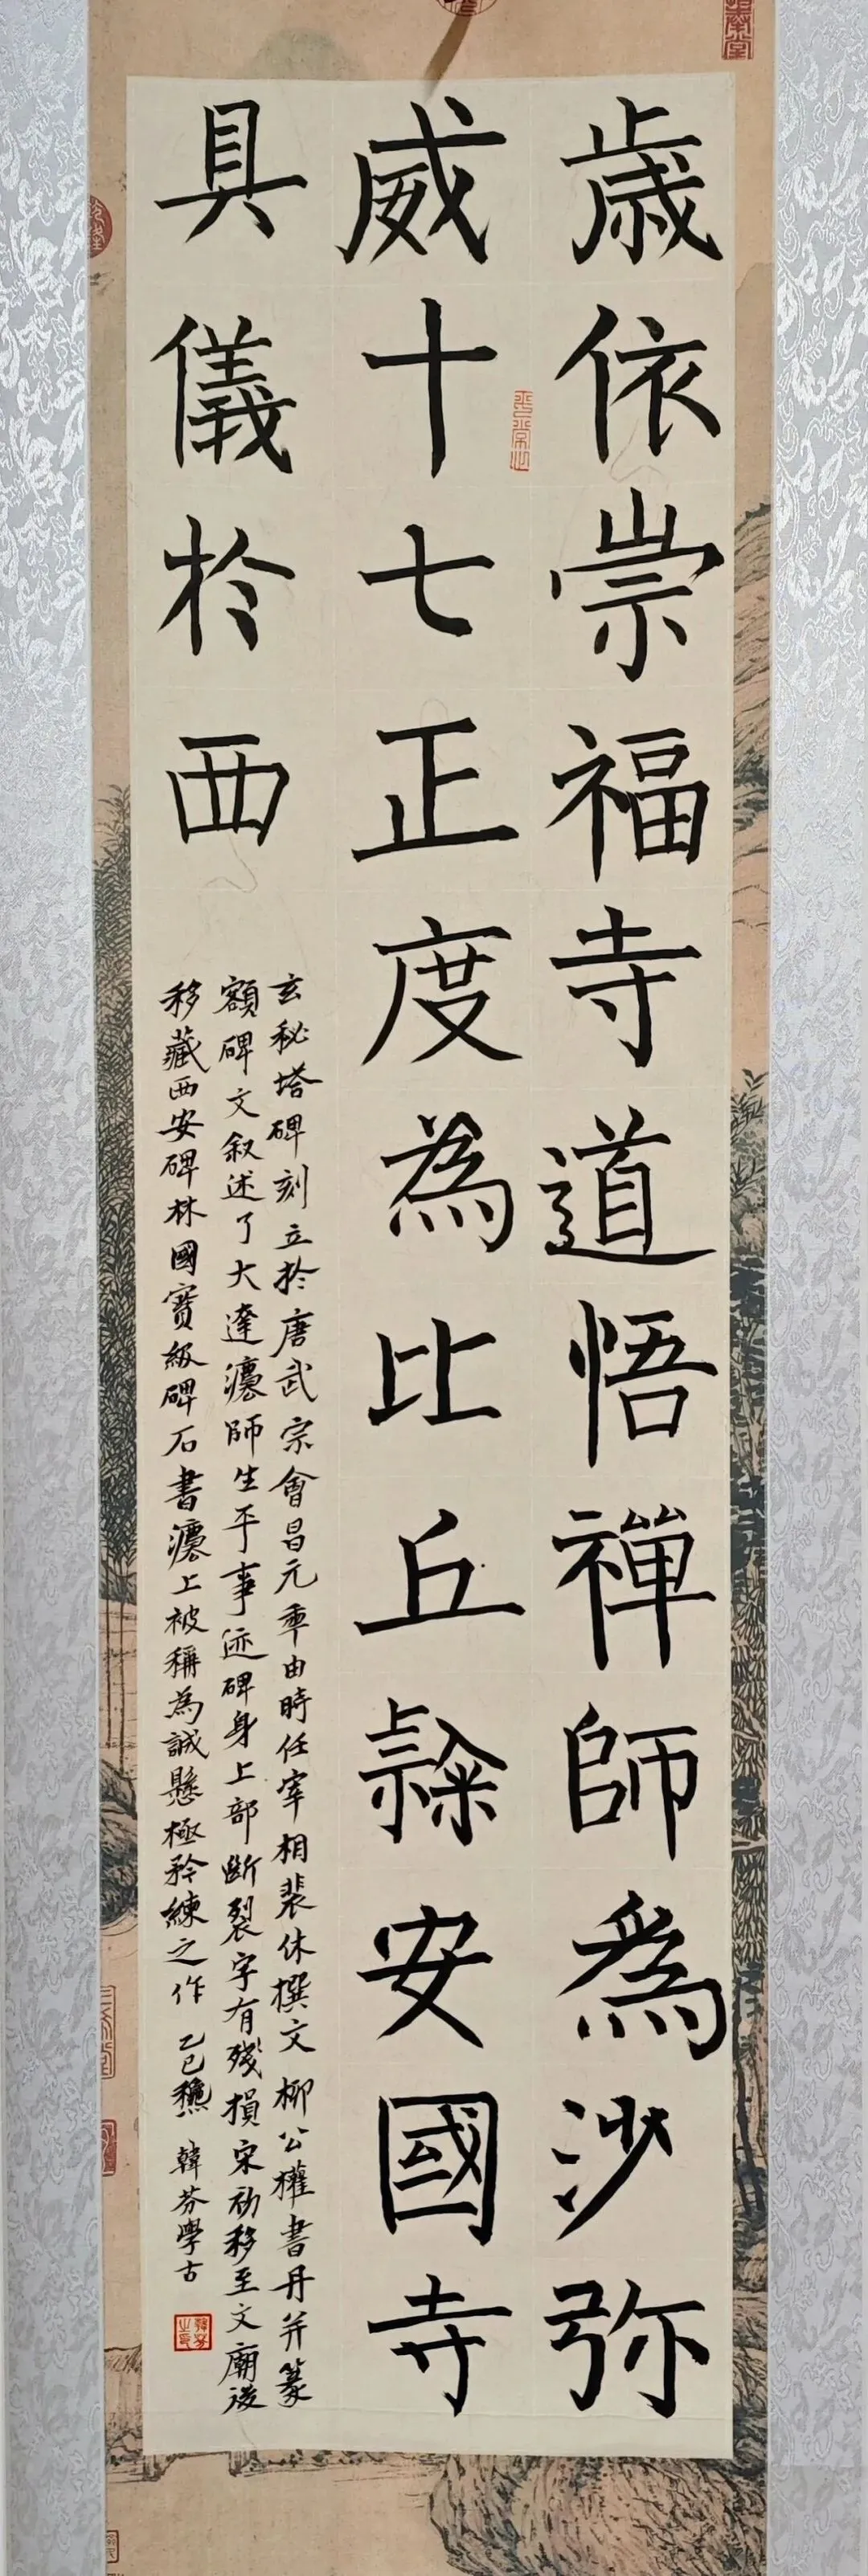 歲依崇福寺道悟禪師爲沙弥
威十七正度為比丘隸安國寺
具儀於西
玄秘塔碑刻立於唐武宗會昌元年由時任宰相裴休撰文柳公權書丹并篆
額碑文叙述了大達灋師生平事迹碑身上部斷裂字有殘損宋初移至文廟後
移藏西安碑林國寶級碑石書灋上被稱為誠懸極矜練之作 乙巳龝 韓芬學古